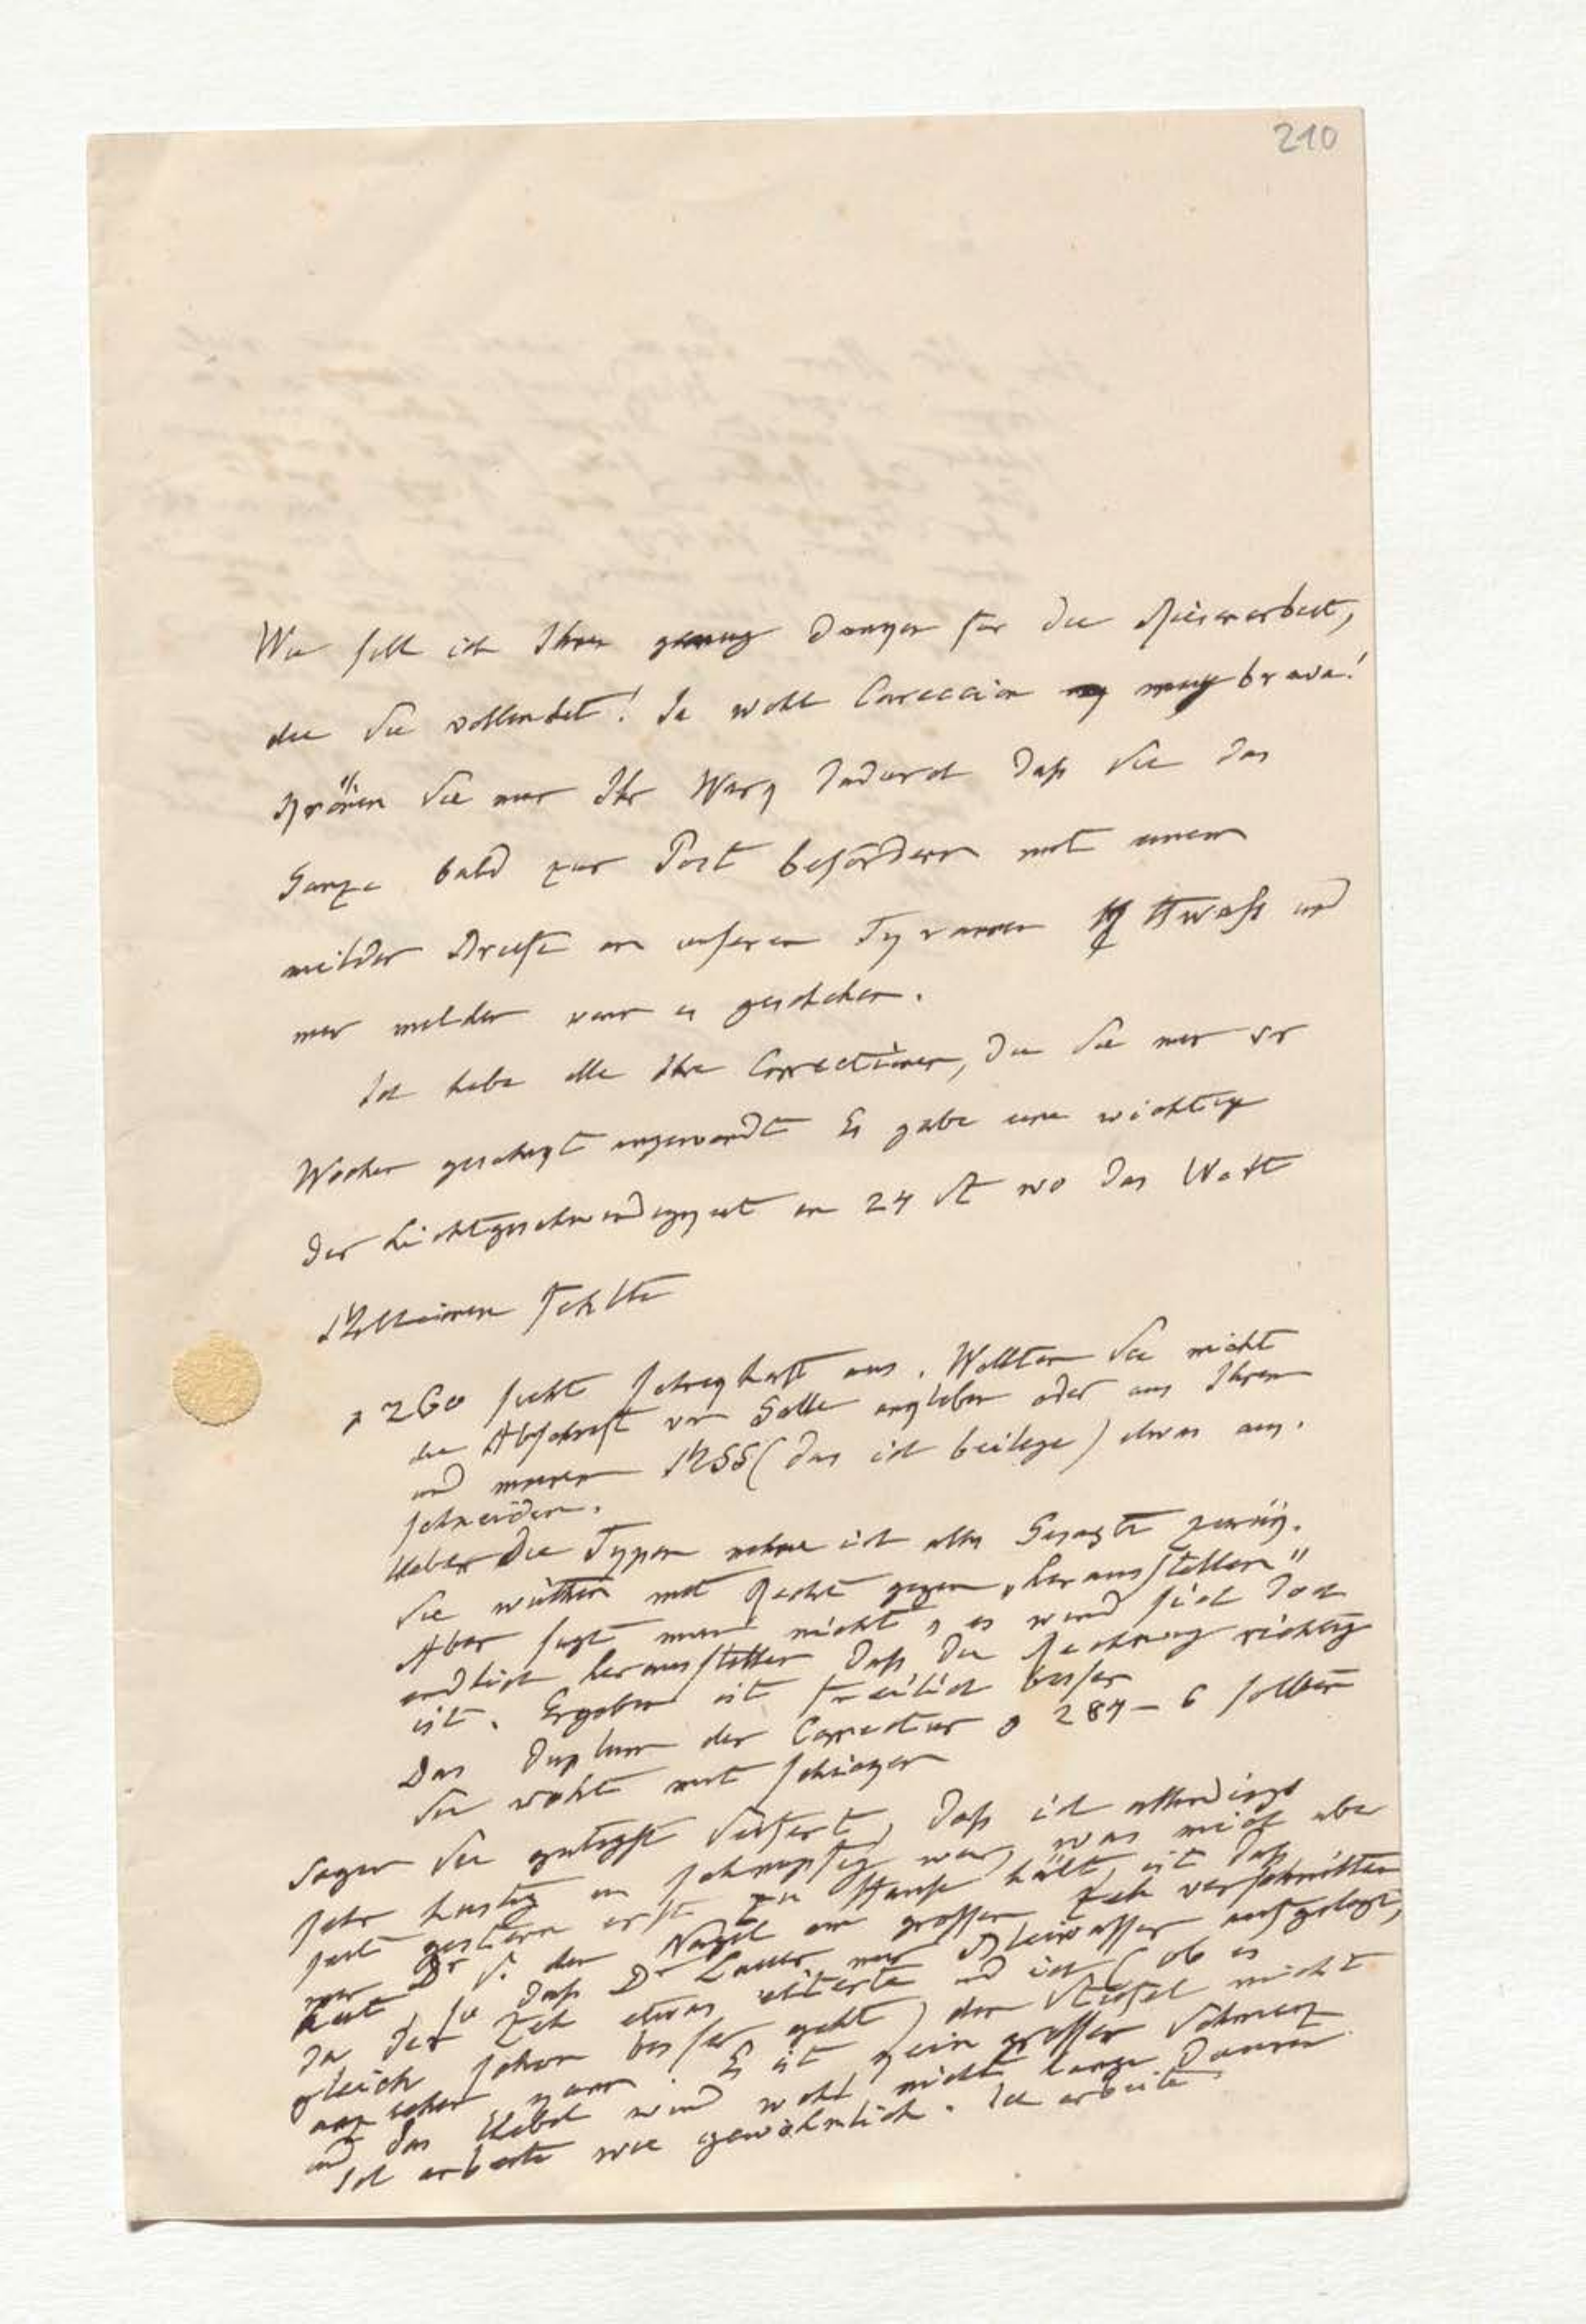 210
Wie soll ich Ihnen genug danken für die Riesenarbeit,
die Sie vollendet! Ja wohl Coreccion muy brava!
Krönen Sie nur Ihr Werk dadurch daß Sie das
Ganze bald zur Post befördern mit einem
milden Briefe an unseren Tyrannen Hallwachs und
mir melden wenn es geschehen.
Ich habe alle Ihre Correctionen, die Sie mir vor
Wochen geschickt angewandt Es gabe eine wichtige
der Lichtgeschwindigkeit in 24 St wo das Wort
Millionen fehlte
p 260 sieht schreckhaft aus. Wollten Sie nicht
die Abschrift von Galle ankleben oder aus Ihrem
und meinem MSS (das ich beilege) etwas aus.
schneiden.
Ueber die Typen nehme ich alles Gesagte zurük.
Sie wüthen mit Recht gegen „herausstellen"
Aber sagt man nicht, es wird sich doch
endlich herausstellen daß die Rechnung richtig
ist. Ergeben ist freilich besser
Das Duplum der Correctur p 284-6 sollten
Sie wohl mit schicken
Sagen Sie gütigst Seifert, daß ich allerdings
sehr hustig u schnupfig war, was mich aber
seit gestern erst zu Hause hält, ist daß
mir Dr S. den Nagel am grossen Zeh verschnitten
hat, so daß Dr Lauer mir Bleiwasser aufgelegt,
da der Zeh etwas eiterte und ich (ob es
gleich schon besser geht) den Stiefel nicht
anziehen kann. Es ist kein grosser Schmerz
und das Uebel wird wohl nicht lange dauern
Ich arbeite wie gewöhnlich. Ich arbeite